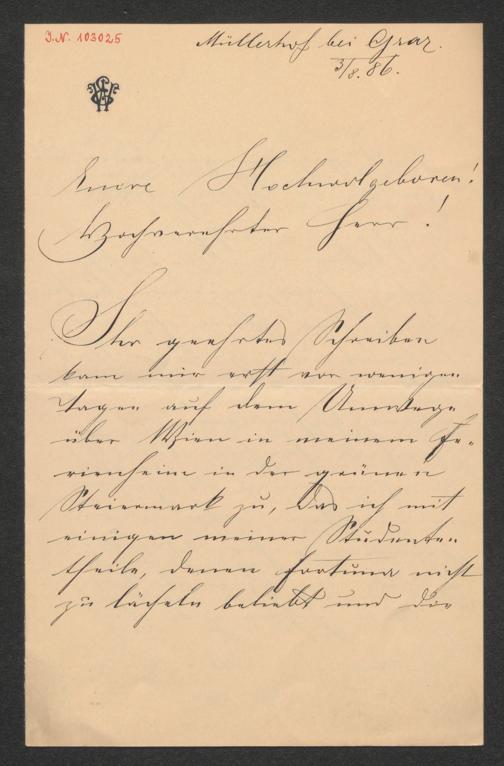 J.N. 103025
Müllerhof bei Graz.
3/8. 86.
Euere Hochwolgeboren!
Hochverehrter Herr!
Ihr geehrtes Schreiben
kam mir erst vor wenigen
Tagen auf dem Umwege
über Wien in meinem Fe-
rienheim in der grünen
Steiermark zu, das ich mit
einigen meiner Studenten
theile, denen Fortuna nicht
zu lächeln beliebt und die